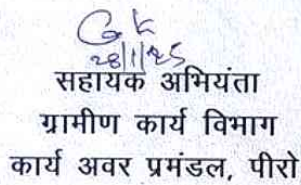 28/1/25
सहायक अभियंता
ग्रामीण कार्य विभाग
कार्य अवर प्रमंडल, पीरो